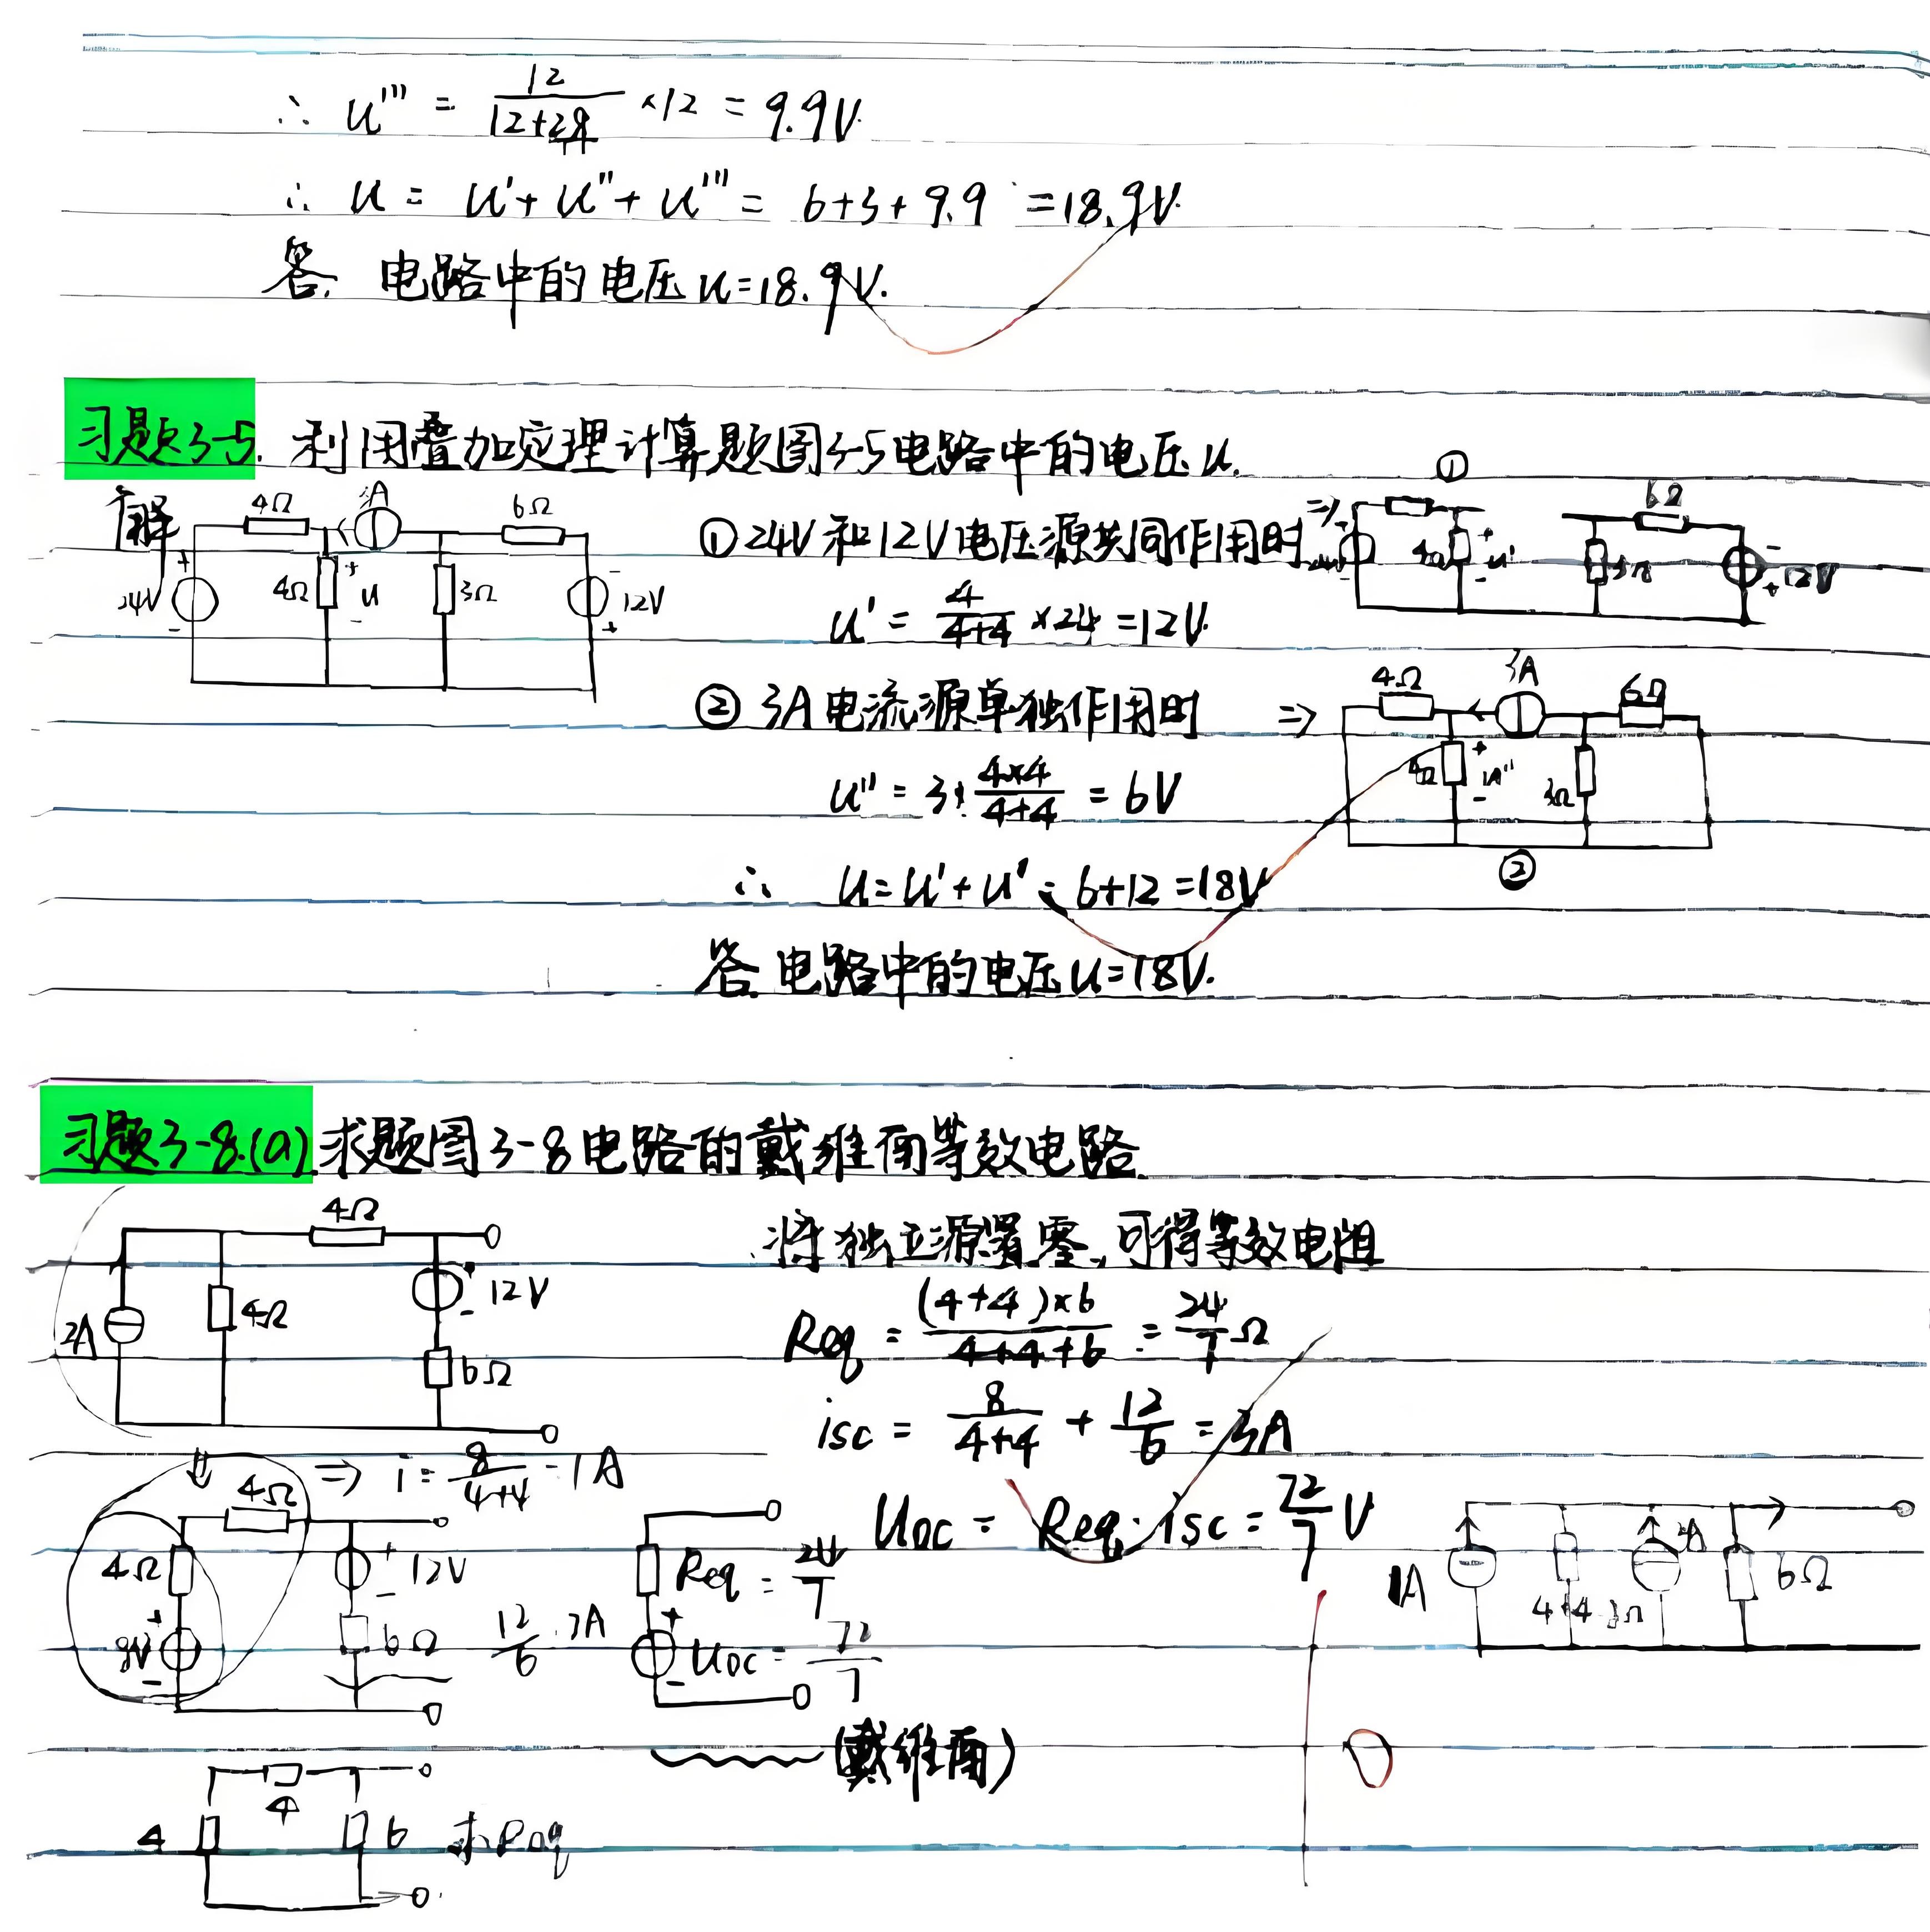 ∴ u''' = 12/(12+ ) ×12 = 9.9V.
∴ u = u'+u''+u''' = 6+3+9.9 =18.9V.
答. 电路中的电压u=18.9V.
习题3-5. 利用叠加定理计算题图3-5电路中的电压u.
解
4Ω 3A 6Ω
24V + - 4Ω + u - 3Ω - 12V +
① 24V和12V电压源共同作用时 ⇒
①
4Ω + u' - 3Ω 6Ω - + 12V
u' = 4/(4+4) ×24 =12V.
② 3A电流源单独作用时 ⇒
4Ω 3A 6Ω
4Ω + u'' - 3Ω
②
u'' = 3×(4×4)/(4+4) = 6V
∴ u=u'+u' = 6+12=18V
答.电路中的电压u=18V.
习题3-8.(a).求题图3-8电路的戴维南等效电路.
4Ω
2A 4Ω + 12V - 6Ω
将独立源置零,可得等效电阻
Req = ((4+4)×6)/(4+4+6) = 24/7 Ω
isc = 8/(4+4) + 12/6 = 3A
Uoc = Req·isc = 72/7 V
⇓ 4Ω ⇒ i = 8/(4+4) = 1A
4Ω + 12V -
8V + - 6Ω 12/6
Req = 24/7
+ Uoc - = 72/7
(戴维南)
1A 4+4 2A 6Ω
4
4 6 求Req